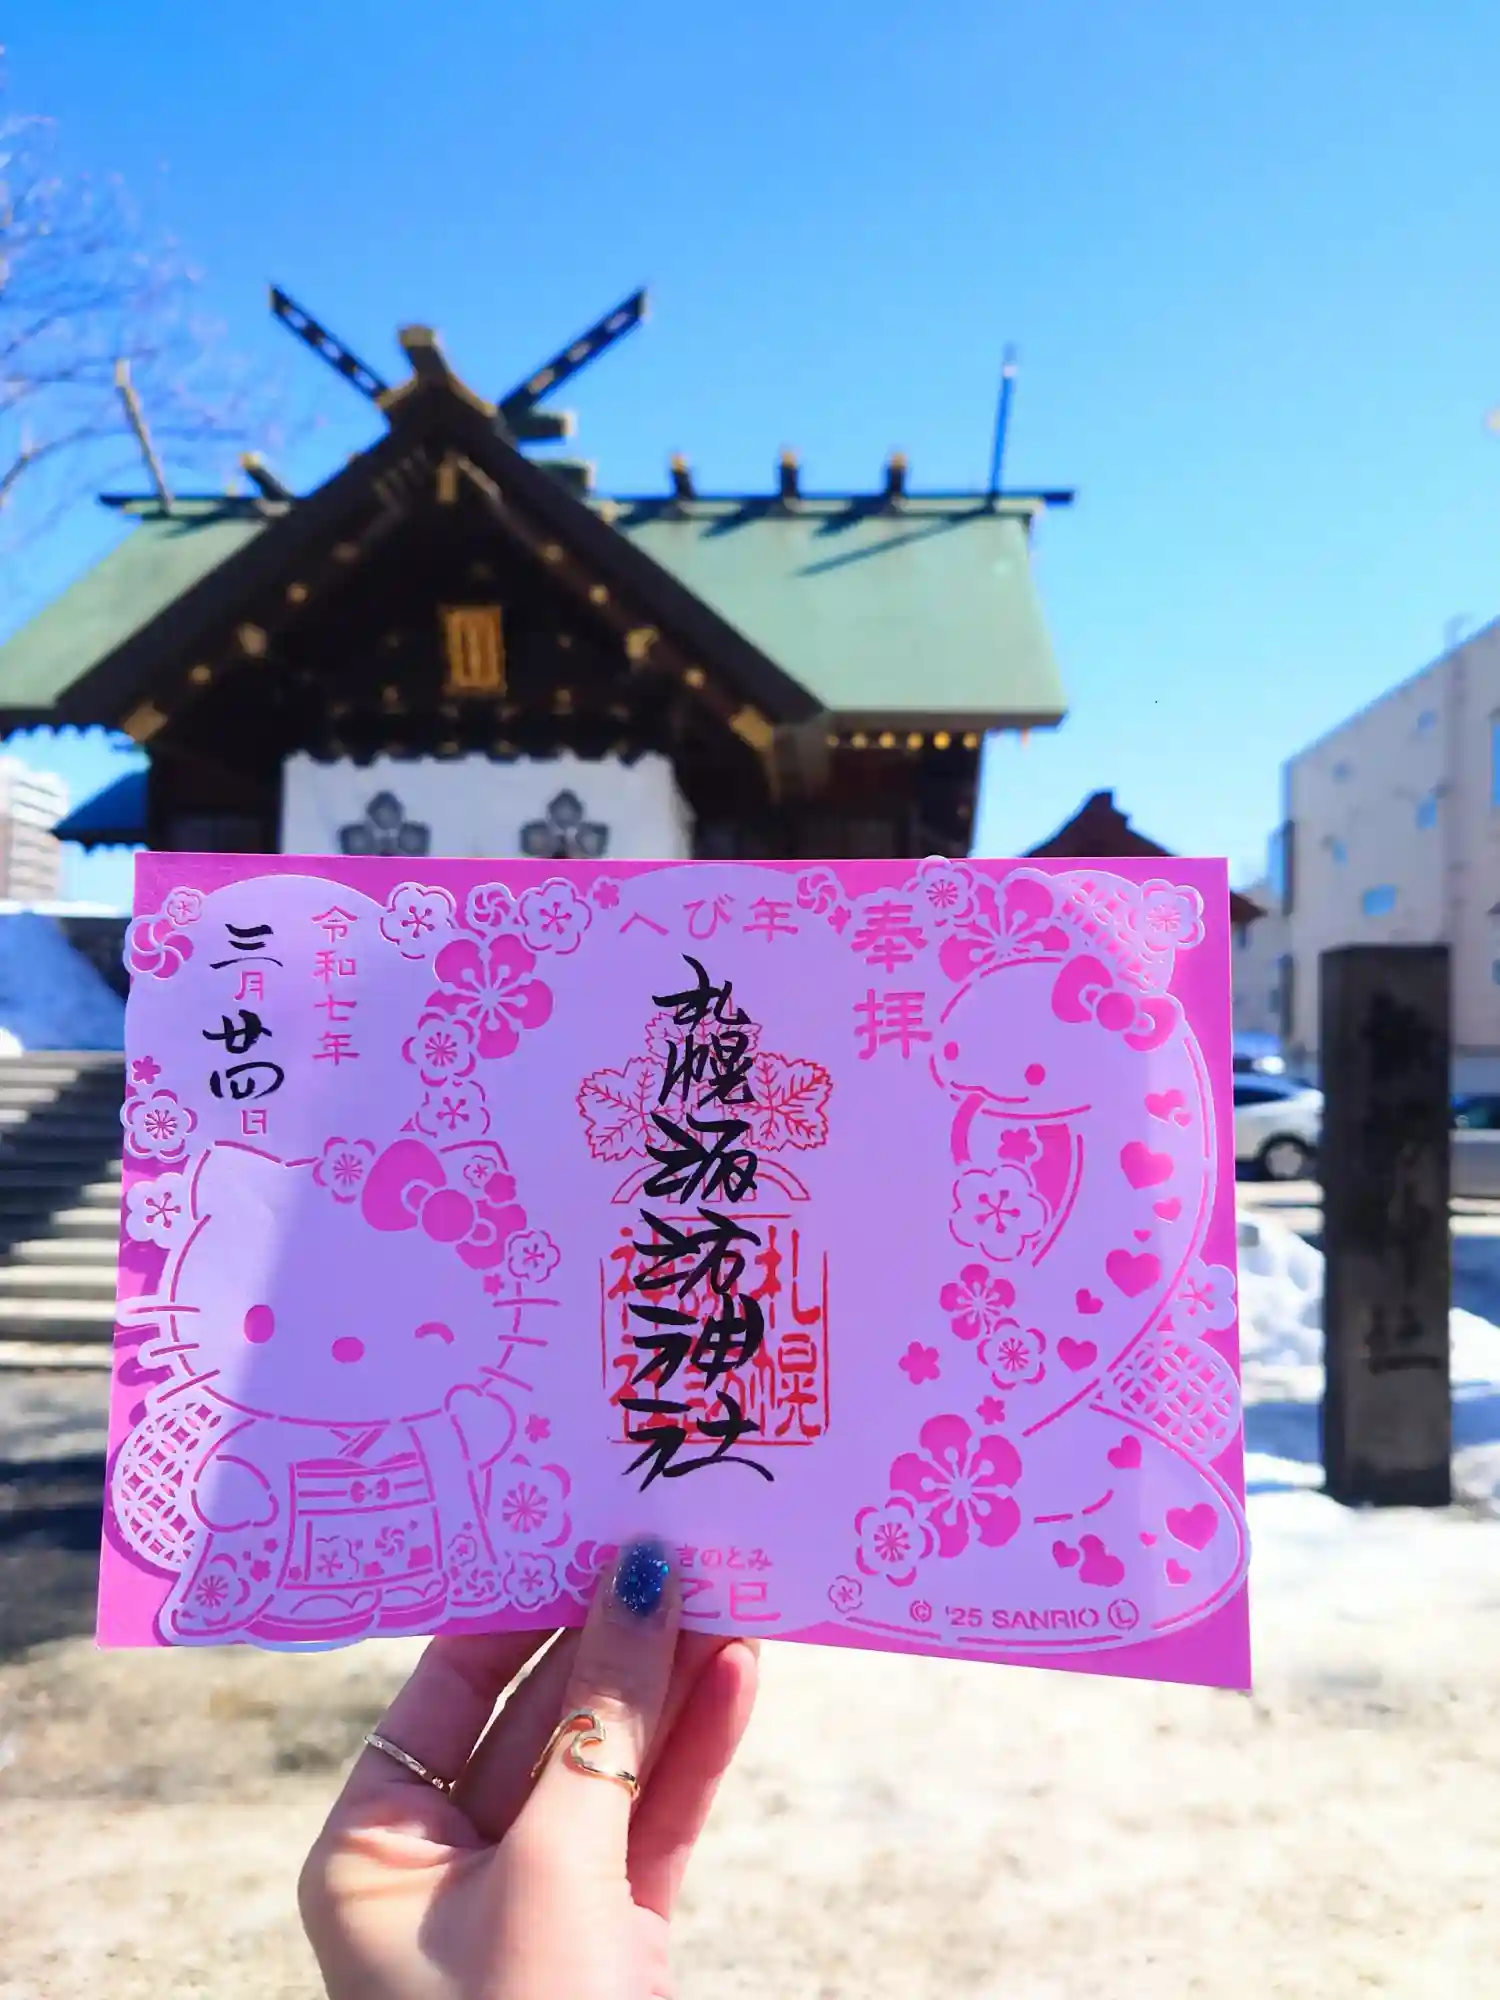 奉拝
へび年
札幌諏訪神社
札幌
諏訪
神社
きのとみ
乙巳
令和七年
三月廿四日
© '25 SANRIO Ⓛ